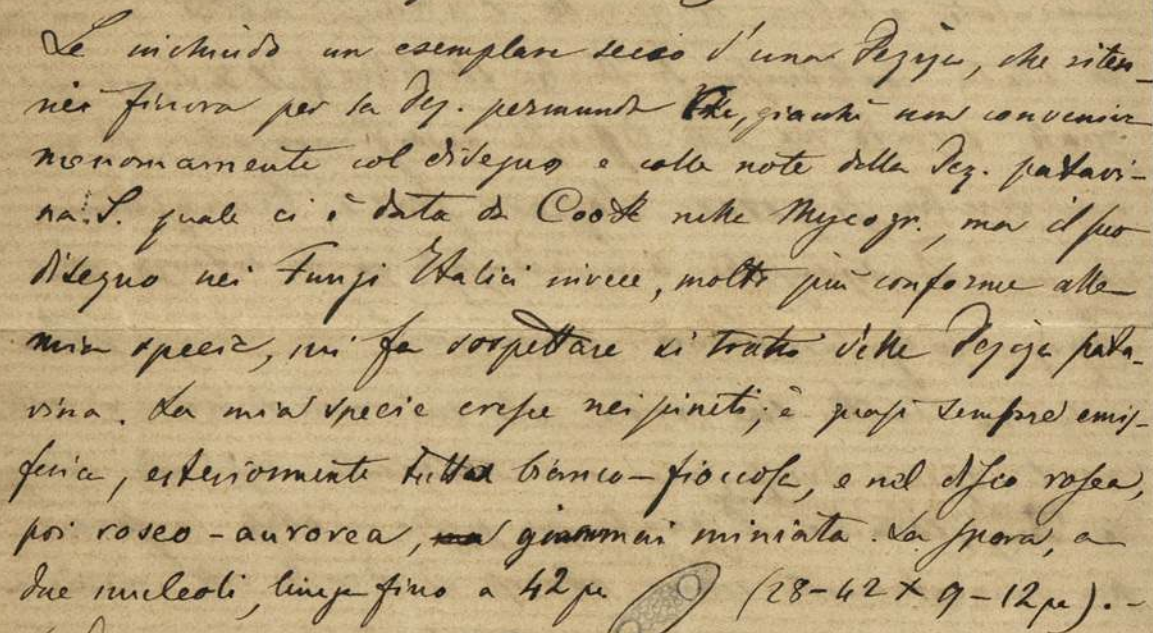 Le inchiudo un esemplare secco d'una Peziza, che riten-
ni finora per la Pez. permunda Cke, giacchè non conveniva
menomamente col disegno e colle note della Pez. patavi-
na S. quale ci è data da Cooke nelle Mycogr., ma il suo
disegno nei Fungi Italici invece, molto più conforme alla
mia specie, mi fa sospettare si tratti della Peziza pata-
vina. La mia specie cresce nei pineti; è quasi sempre emis-
ferica, esteriormente tutta bianco-fioccosa, e nel disco rosea,
poi roseo-aurorea, giammai miniata. La spora, a
due nucleoli, lunga fino a 42 µ (28-42 × 9-12 µ).-